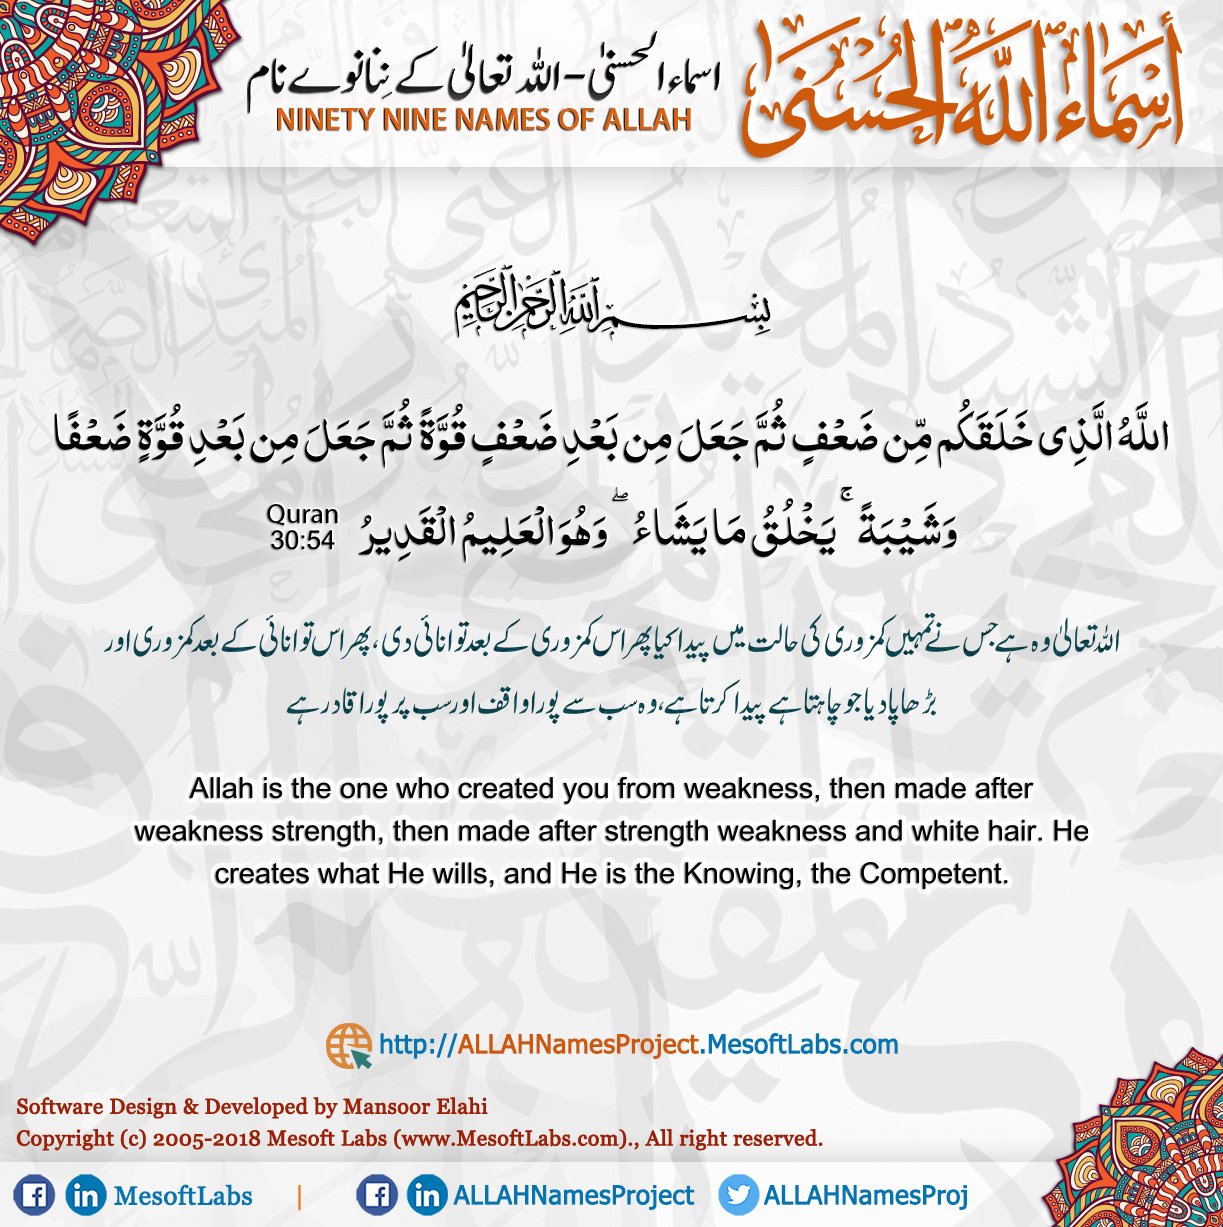 أسماء الله الحسنى
اسماء الحسنیٰ - اللہ تعالیٰ کے ننانوے نام
NINETY NINE NAMES OF ALLAH
بسم الله الرحمن الرحيم
اللَّهُ الَّذِى خَلَقَكُم مِّن ضَعْفٍ ثُمَّ جَعَلَ مِن بَعْدِ ضَعْفٍ قُوَّةً ثُمَّ جَعَلَ مِن بَعْدِ قُوَّةٍ ضَعْفًا
وَشَيْبَةً ۚ يَخْلُقُ مَا يَشَاءُ ۖ وَهُوَ الْعَلِيمُ الْقَدِيرُ Quran 30:54
اللہ تعالیٰ وہ ہے جس نے تمہیں کمزوری کی حالت میں پیدا کیا پھر اس کمزوری کے بعد توانائی دی، پھر اس توانائی کے بعد کمزوری اور
بڑھاپا دیا جو چاہتا ہے پیدا کرتا ہے، وہ سب سے پورا واقف اور سب پر پورا قادر ہے
Allah is the one who created you from weakness, then made after
weakness strength, then made after strength weakness and white hair. He
creates what He wills, and He is the Knowing, the Competent.
http://ALLAHNamesProject.MesoftLabs.com
Software Design & Developed by Mansoor Elahi
Copyright (c) 2005-2018 Mesoft Labs (www.MesoftLabs.com)., All right reserved.
MesoftLabs | ALLAHNamesProject ALLAHNamesProj